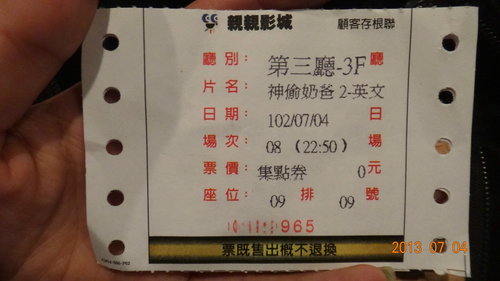 親親影城 顧客存根聯
廳別: 第三廳-3F 廳
片名: 神偷奶爸 2-英文
日期: 102/07/04 日
場次: 08 (22:50) 場
票價: 集點券 0元
座位: 09 排 09 號
965
票既售出概不退換
2013 07 04